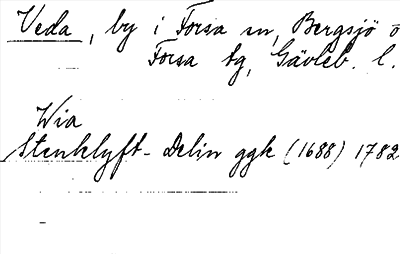 Veda, by i Forsa sn, Bergsjö o
Forsa tg, Gävleb. l.
Wia
Stenklyft-Delin ggk (1688) 1782